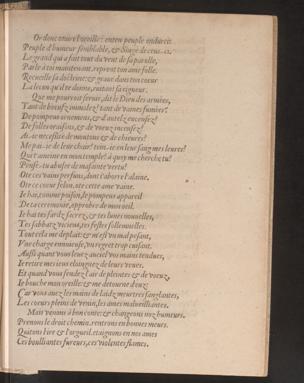 Or donc ouvre l'oreille: enten peuple endurci:
Peuple d'humeur semblable, & Siège de ceux-ci,
Le grand qui a fait tout du vent de sa parolle,
Parle à toi maintenant, reprent ton ame folle.
Recueille sa doctrine: & grave dans ton coeur
La leçon qu'il te donne, suivant sa rigueur.
Que me pourroit servir, dit le Dieu des armées,
Tant de boeufs inmolez? tant de vaines fumées?
De pompeux ornemens, & d'autels encensez?
De folles oraisons, & de voeux incensez?
Ai-je necessité de moutons & de chevres?
Me pai-je de leur chair? tein-je en leur sang mes levres?
Qui t'ameine en mon temple? à quoy me cherche tu?
Pense-tu abuser de ma sainte vertu?
Ote ces vains perfuns, dont t'aborre l'alaine,
Ote ce coeur felon, ote cette ame vaine.
Je hai, comme poison, le pompeux appareil
De ta ceremonie, approuvé de mon oeil.
Je hai tes sardz sacrez, & tes lunes nouvelles,
Tes sabbatz vicieux, tes festes sollennelles.
Tout cela me deplait: & m'est un mal pesant,
Une charge ennuieuse, un regret trop cuisant.
Aussi quant vous levez au ciel vos mains tendues,
Je retire mes ieux élongnez de leurs veues.
Et quand vous fendez l'air de pleintes & de voeux,
Je bouche mon oreille: & me detourne d'eux:
Car vous avez les mains de laidz meurtres sanglantes,
Les coeurs pleins de venin, les ames malveillantes.
Mais venons à bon conte: & changeons noz humeurs.
Prenons le droit chemin, rentrons en bonnes meurs.
Quitons l'ire & l'orgueil, et aignons en nos ames
Ces bouillantes fureurs, ces violentes flames.